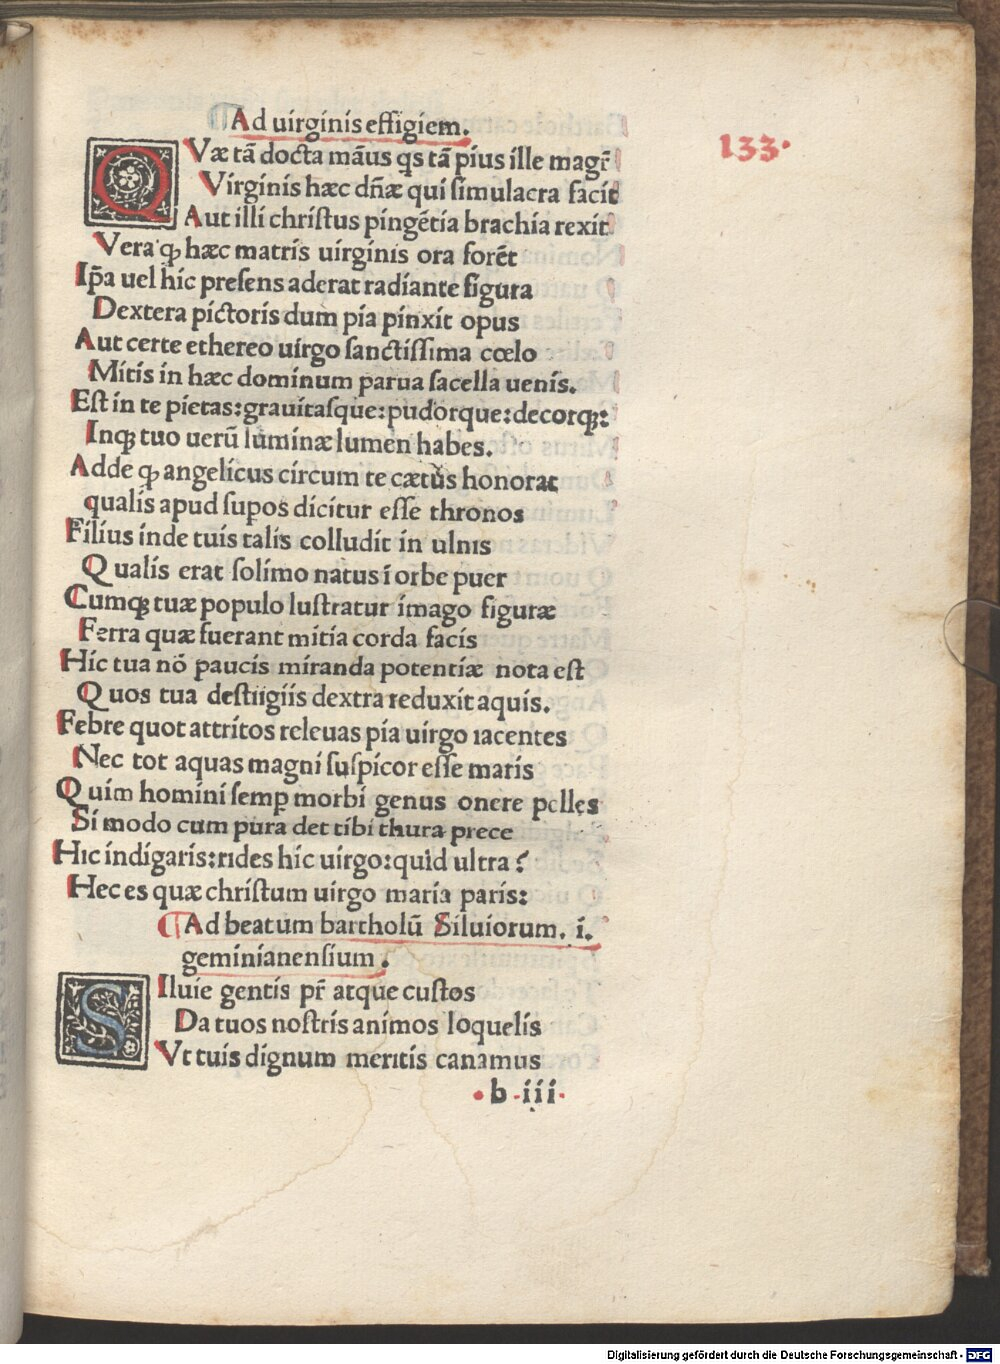 ¶Ad uirginis effigiem.
133.
QVæ tã docta mãus qs tã pius ille magr̃
Virginis hæc dñæ qui simulacra facit
Aut illi christus pingẽtia brachia rexit
Vera ꝙ hæc matris uirginis ora forẽt
Ip̃a uel hic presens aderat radiante figura
Dextera pictoris dum pia pinxit opus
Aut certe ethereo uirgo sanctissima cœlo
Mitis in hæc dominum parua sacella uenis.
Est in te pietas:grauitasque:pudorque:decorqꝫ:
Inqꝫ tuo uerũ luminæ lumen habes.
Adde ꝙ angelicus circum te cætus honorat
qualis apud supos dicitur esse thronos
Filius inde tuis talis colludit in ulnis
Qualis erat solimo natus ĩ orbe puer
Cumqꝫ tuæ populo lustratur imago figuræ
Ferra quæ fuerant mitia corda facis
Hic tua nõ paucis miranda potentiæ nota est
Quos tua destiigiis dextra reduxit aquis.
Febre quot attritos releuas pia uirgo iacentes
Nec tot aquas magni suspicor esse maris
Quim homini semꝑ morbi genus onere pelles
Si modo cum pura det tibi thura prece
Hic indigaris:rides hic uirgo:quid ultra?
Hec es quæ christum uirgo maria paris:
¶Ad beatum bartholũ Siluiorum. i.
geminianensium.
SIluie gentis pr̃ atque custos
Da tuos nostris animos loquelis
Vt tuis dignum meritis canamus
.b.iii.
Digitalisierung gefördert durch die Deutsche Forschungsgemeinschaft - DFG